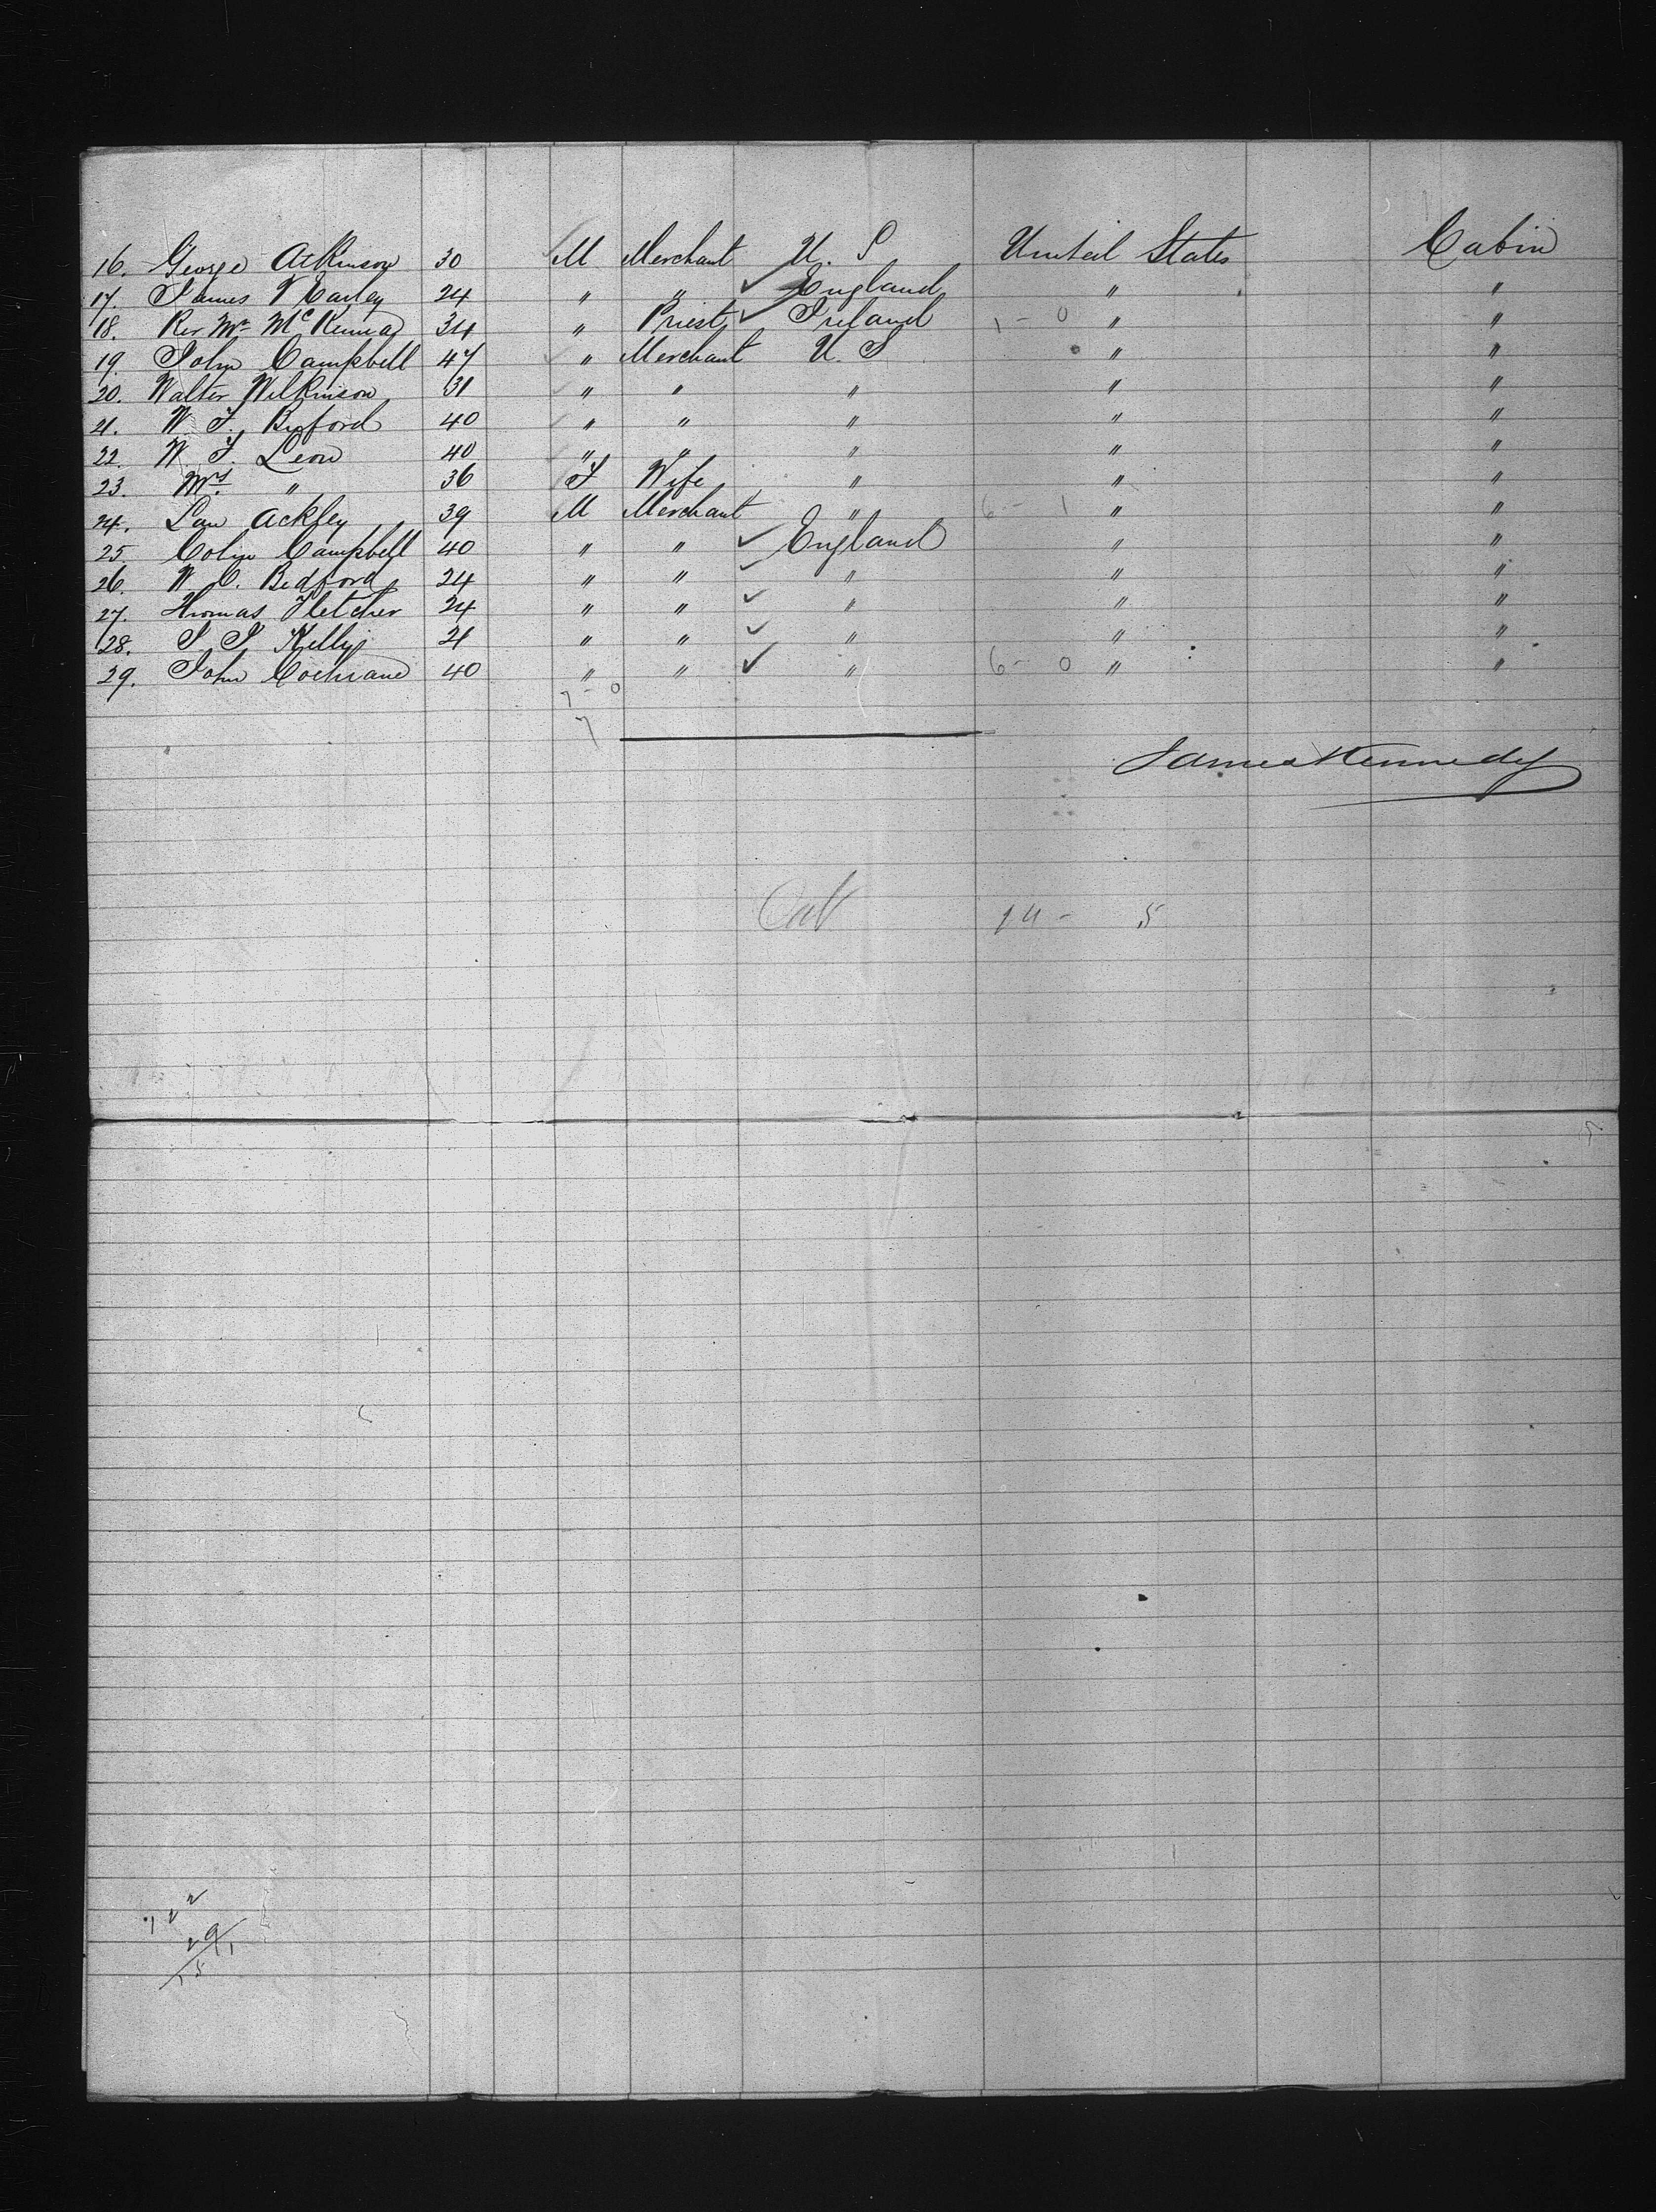 16. George Atkinson 30 M Merchant U. S United States Cabin
17. James V Carley 24 " " ✓ England " "
18. Rev Mr McKenna 34 " Priest ✓ Ireland 1 - 0 " "
19. John Campbell 47 " Merchant U. S " "
20. Walter Wilkinson 31 " " " " "
21. W. F. Buford 40 " " " " "
22. W. F. Leon 40 " " " " "
23. Mrs " 36 F Wife " " "
24. Law Ackley 39 M Merchant " 6 - 1 " "
25 Colin Campbell 40 " " ✓ England " "
26. W. C. Bedford 24 " " ✓ " " "
27. Thomas Fletcher 24 " " ✓ " " "
28. J. J. Kelly 21 " " ✓ " " "
29. John Cochrane 40 " " ✓ " 6 - 0 " "
7 - 0
7
James Kennedy
Cab 14 - 5